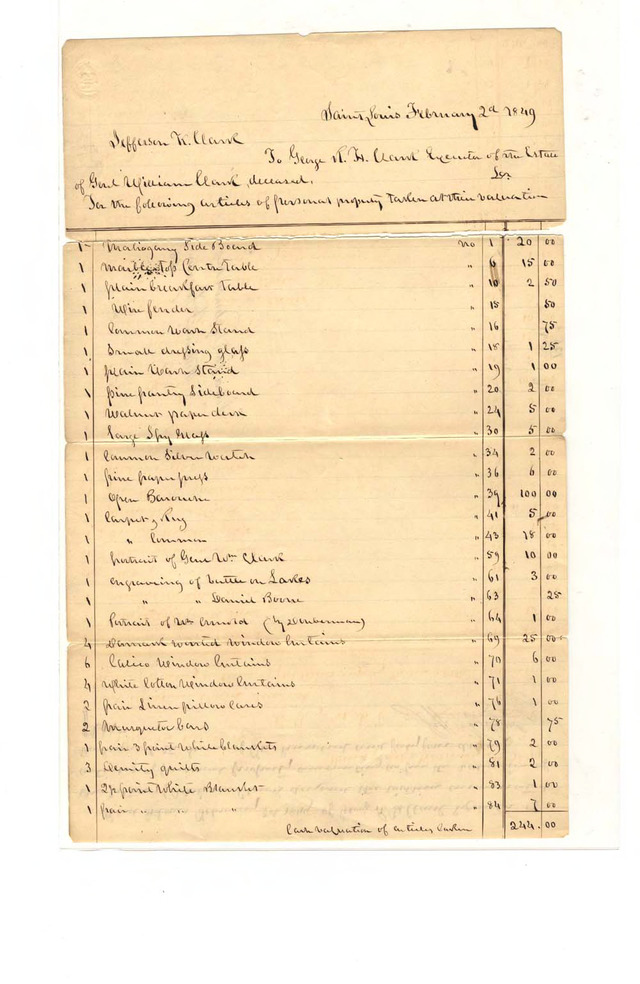 Saint Louis February 2d 1849
Jefferson K. Clark
To George R. H. Clark Executor of the Estate
of Genl William Clark, deceased, Dr
For the following articles of personal property taken at their valuation
1 Mahogany Side Board no 1 20 00
1 marble top Centre Table " 6 15 00
1 plain breakfast table " 10 2 50
1 Wire fender " 15 50
1 Common Wash Stand " 16 75
1 Small dressing glass " 18 1 25
1 plain Wash Stand " 19 1 00
1 pine pantry Sideboard " 20 2 00
1 Walnut paper desk " 24 5 00
1 large Spy Glass " 30 5 00
1 Common Silver Watch " 34 2 00
1 pine paper press " 36 6 00
1 Open Barouche " 39 100 00
1 Carpet & Rug " 41 5 00
1 " Common " 43 18 00
1 portrait of Genl Wm Clark " 59 10 00
1 engraving of battle on Lakes " 61 3 00
1 " " Daniel Boone " 63 25
1 Portrait of Wm (by ) " 64 1 00
4 Damask worsted window Curtains " 69 25 00
6 Calico Window Curtains " 70 6 00
4 White Cotton Window Curtains " 71 1 00
2 pair Linen pillow Cases " 76 1 00
2 bars " 78 75
1 pair 3 point White blankets " 79 2 00
3 Dimity quilts " 81 2 00
1 2½ point White Blanket " 83 1 00
1 pair " " " " 84 7 00
Cash valuation of articles taken 244.00